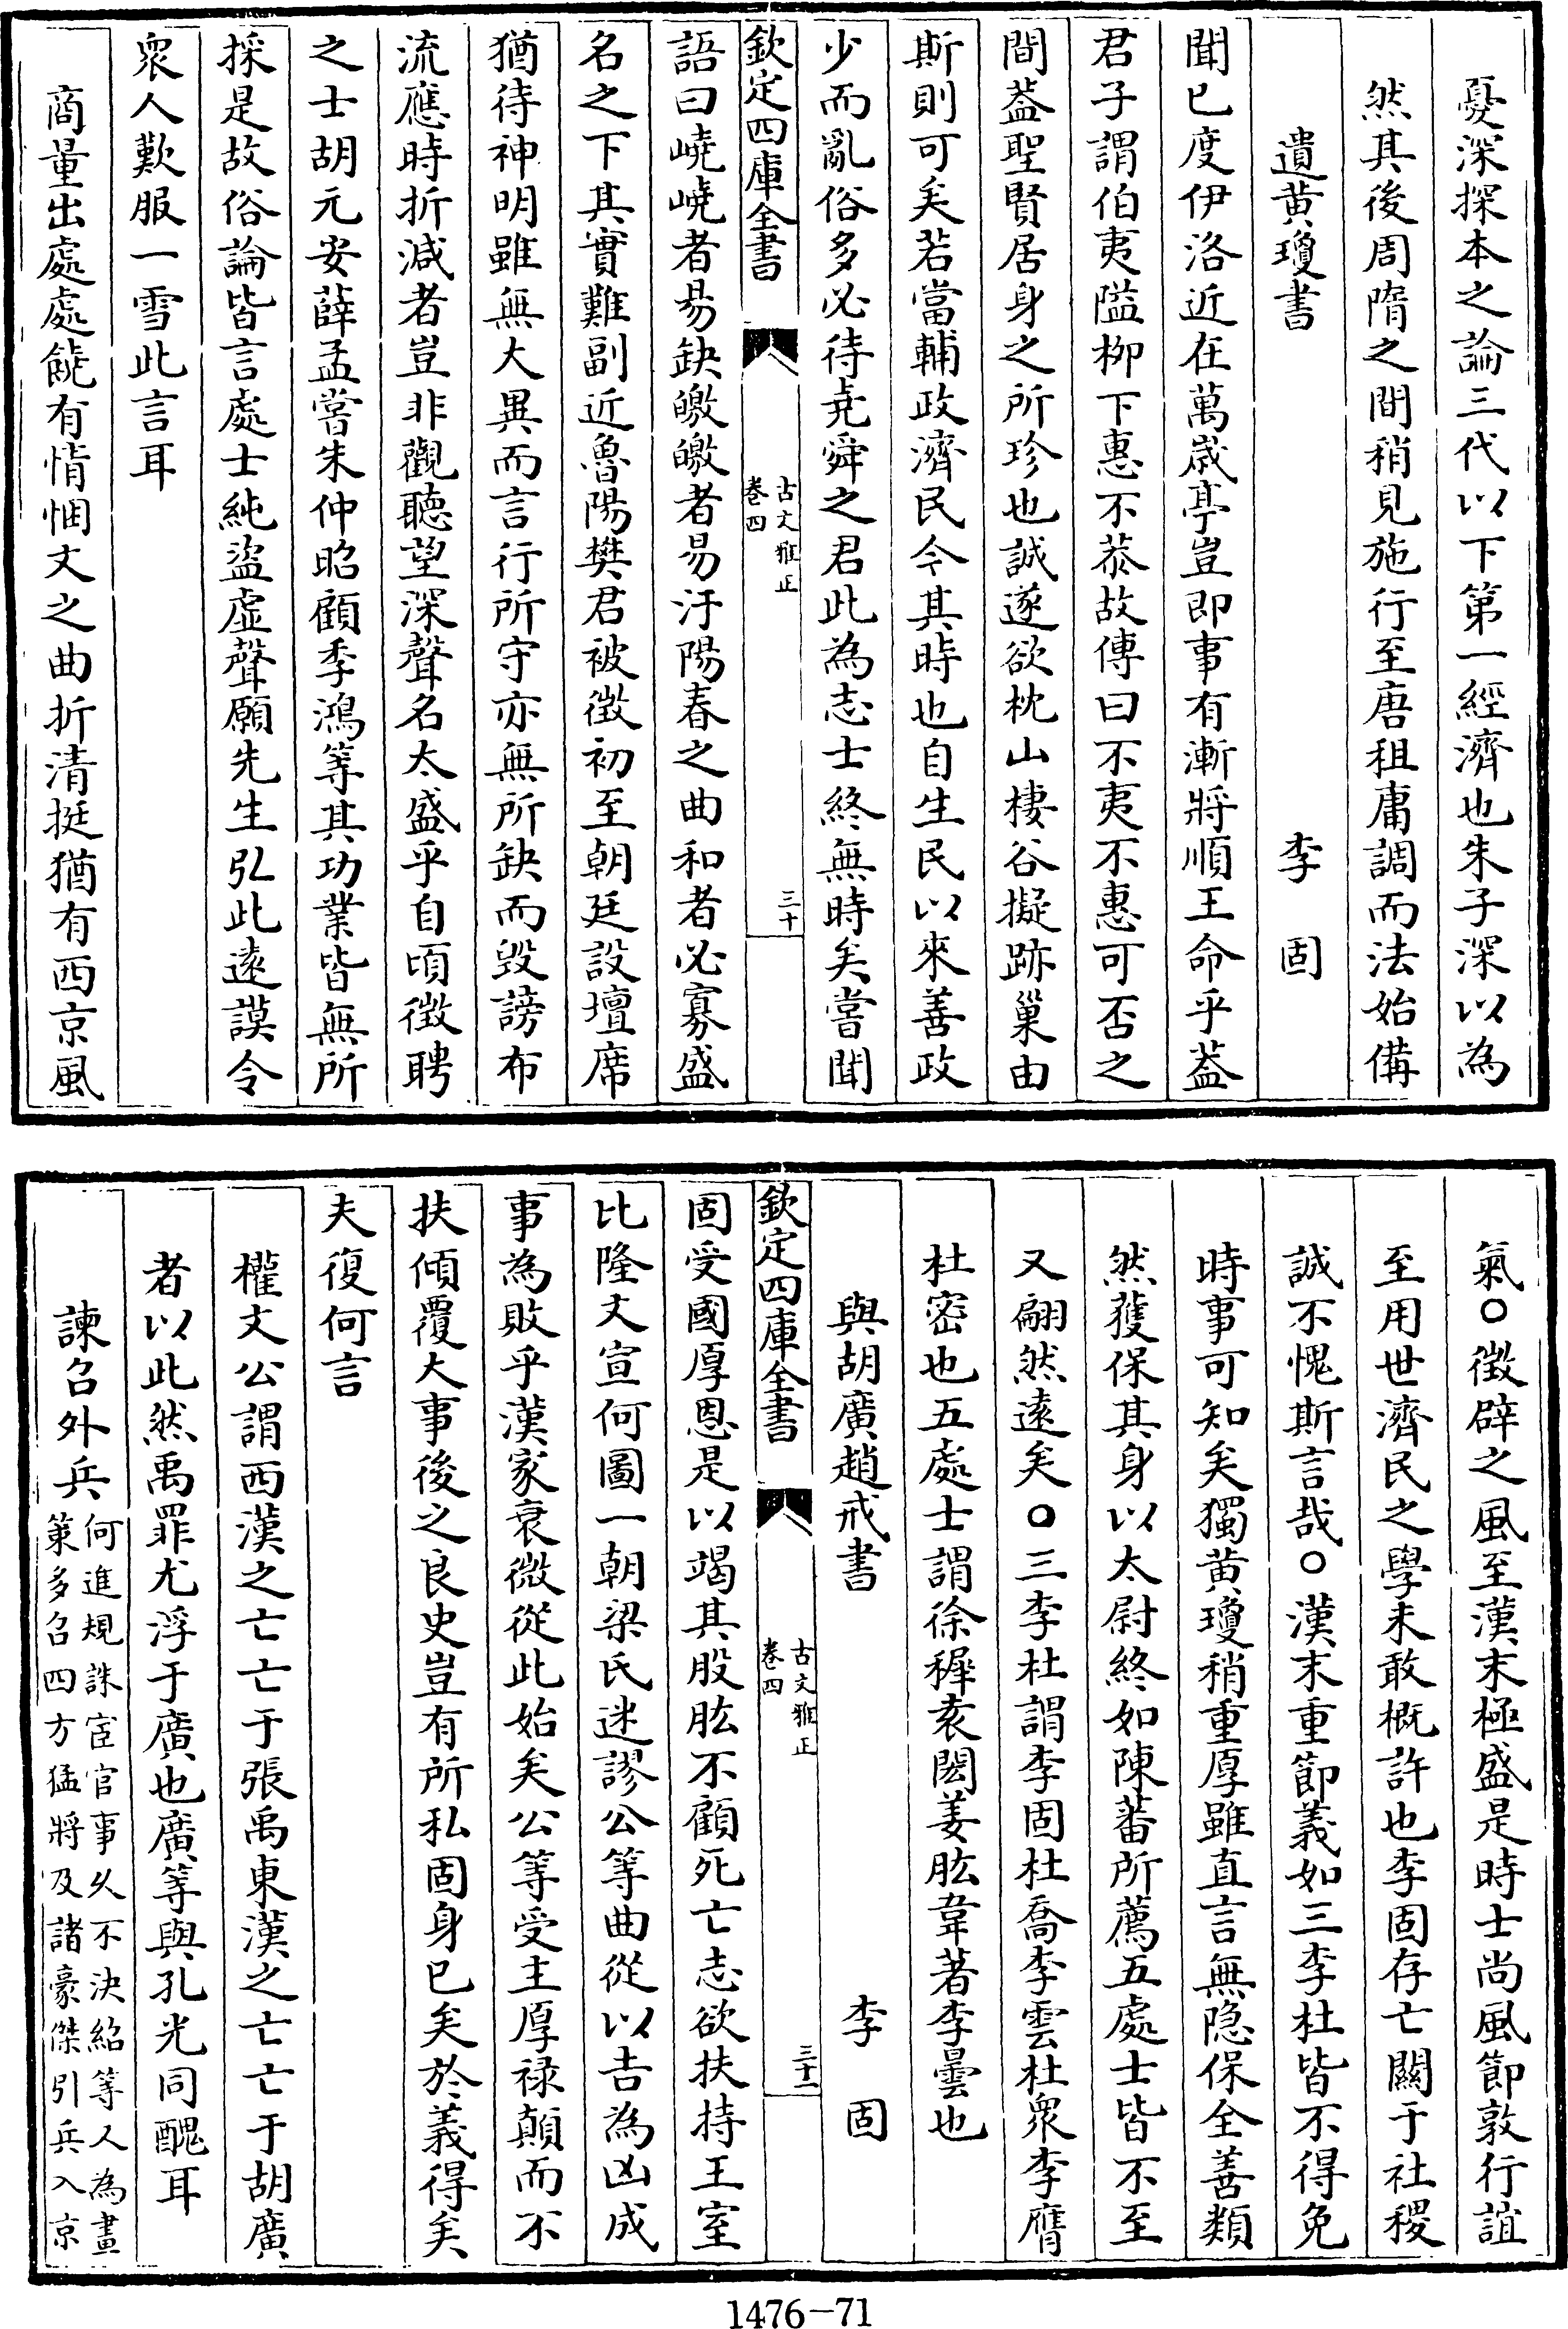 憂深探本之論三代以下第一經濟也朱子深以為
然其後周隋之間稍見施行至唐租庸調而法始備
遺黄瓊書　李固
聞已度伊洛近在萬歲亭豈即事有漸將順王命乎葢
君子謂伯夷隘柳下惠不恭故傳曰不夷不惠可否之
間葢聖賢居身之所珍也誠遂欲枕山棲谷擬跡巢由
斯則可矣若當輔政濟民今其時也自生民以來善政
少而亂俗多必待堯舜之君此為志士終無時矣嘗聞
欽定四庫全書
古文雅正
卷四
三十
語曰嶢嶢者易缺皦皦者易汙陽春之曲和者必寡盛
名之下其實難副近魯陽樊君被徴初至朝廷設壇席
猶待神明雖無大異而言行所守亦無所缺而毁謗布
流應時折減者豈非觀聽望深聲名太盛乎自頃徴聘
之士胡元安薛孟嘗朱仲昭顧季鴻等其功業皆無所
採是故俗論皆言處士純盜虛聲願先生弘此遠謨令
衆人歎服一雪此言耳
商量出處處饒有情悃文之曲折清挺猶有西京風
氣○徴辟之風至漢末極盛是時士尚風節敦行誼
至用世濟民之學未敢概許也李固存亡關于社稷
誠不愧斯言哉○漢末重節義如三李杜皆不得免
時事可知矣獨黄瓊稍重厚雖直言無隱保全善類
然獲保其身以太尉終如陳蕃所薦五處士皆不至
又翩然遠矣○三李杜謂李固杜喬李雲杜衆李膺
杜密也五處士謂徐穉袁閎姜肱韋著李曇也
與胡廣趙戒書　李固
欽定四庫全書
古文雅正
卷四
三十一
固受國厚恩是以竭其股肱不顧死亡志欲扶持王室
比隆文宣何圖一朝梁氏迷謬公等曲從以吉為凶成
事為敗乎漢家衰微從此始矣公等受主厚禄顛而不
扶傾覆大事後之良史豈有所私固身已矣於義得矣
夫復何言
權文公謂西漢之亡亡于張禹東漢之亡亡于胡廣
者以此然禹罪尤浮于廣也廣等與孔光同醜耳
諫召外兵何進規誅宦官事久不決紹等人為畫
策多召四方猛將及諸豪傑引兵入京
1476-71